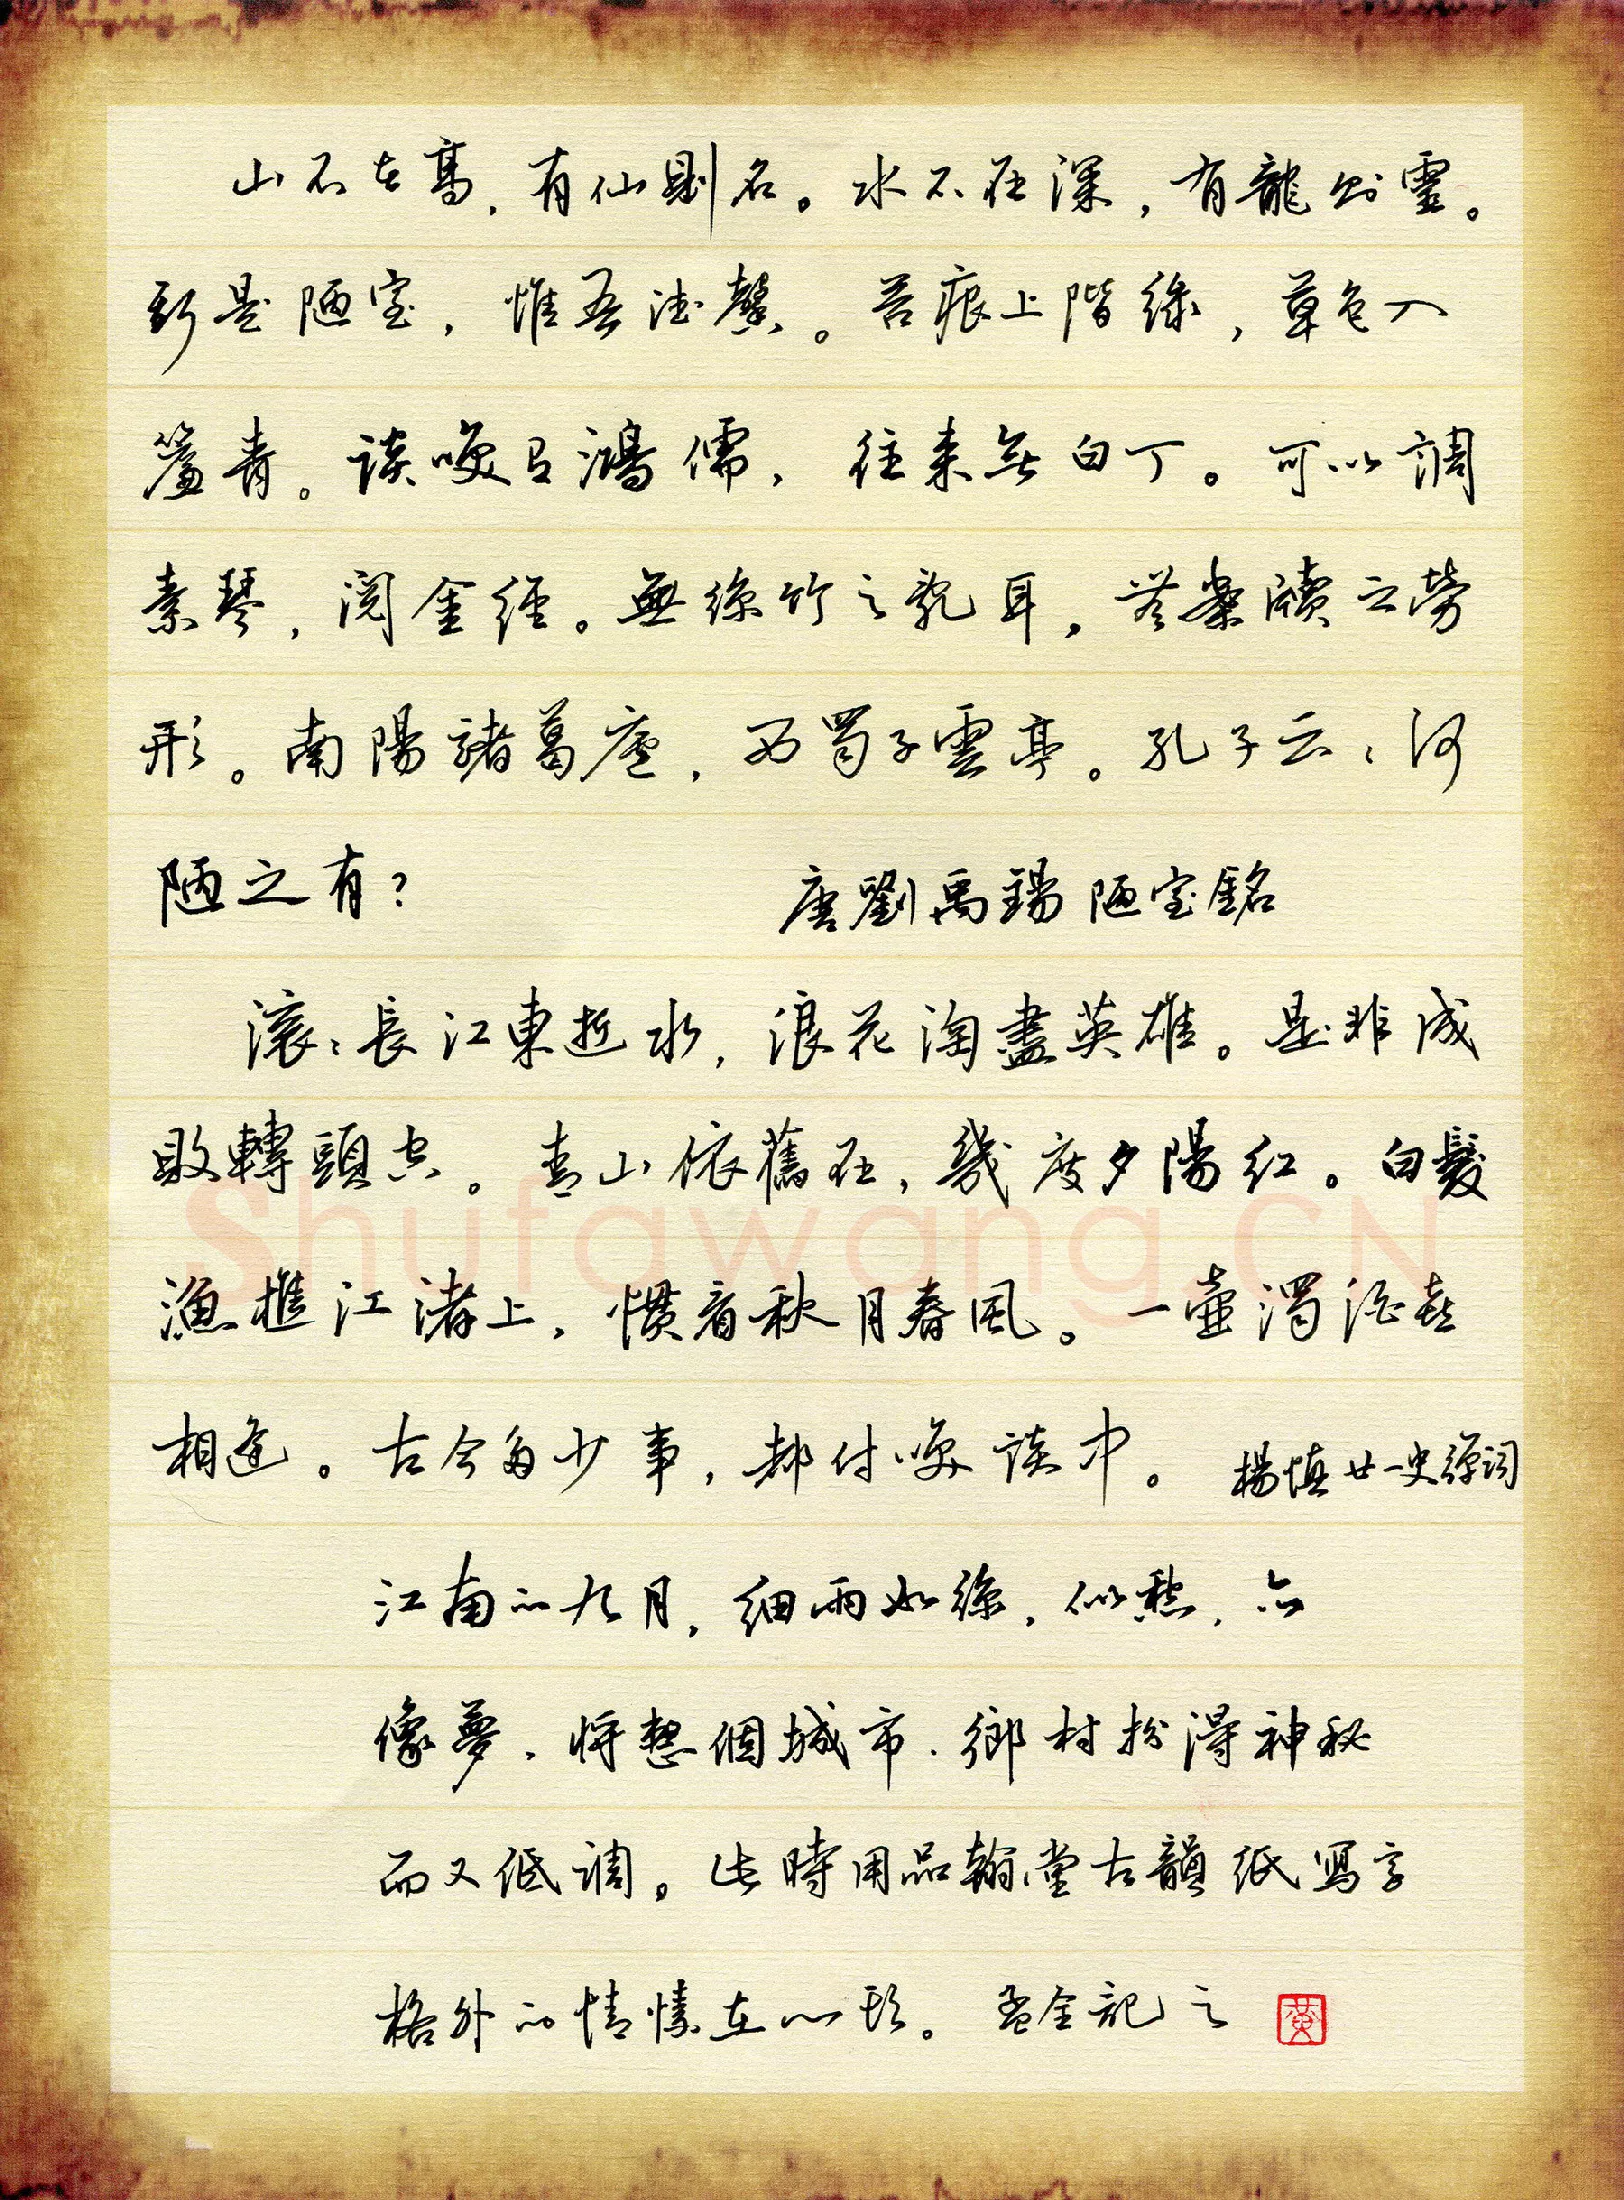 山不在高，有仙則名。水不在深，有龍則靈。
斯是陋室，惟吾德馨。苔痕上階綠，草色入
簾青。談笑有鴻儒，往來無白丁。可以調
素琴，閱金經。無絲竹之亂耳，無案牘之勞
形。南陽諸葛廬，西蜀子雲亭。孔子云：何
陋之有？
唐劉禹錫陋室銘
滾滾長江東逝水，浪花淘盡英雄。是非成
敗轉頭空。青山依舊在，幾度夕陽紅。白髮
漁樵江渚上，慣看秋月春風。一壺濁酒喜
相逢。古今多少事，都付笑談中。楊慎廿一史彈詞
江南的九月，細雨如絲，似愁，亦
像夢，將整個城市、鄉村扮得神秘
而又低調。此時用品翰堂古韻紙寫字
格外的情愫在心頭。孟全記之
黄
Shufawang.CN